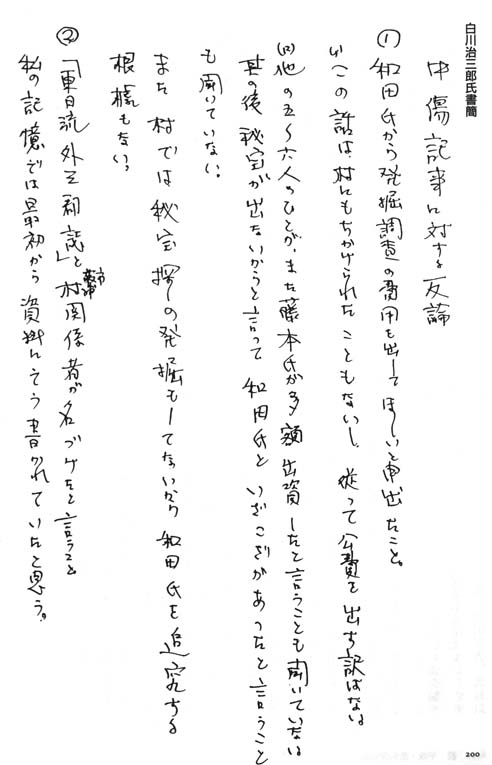 白川治三郎氏書簡
中傷記事に対する反論
① 和田氏から発掘調査の費用を出してほしいと申出たこと。
(イ)この話は、村にもちかけられたこともないし、従って公費を出す訳はない
(ロ)他の五〜六人のひとが、また藤本氏が多額出資したと言うことも聞いていない
其の後秘宝が出ないからと言って和田氏といざこざがあったと言うこと
も聞いていない。
また村では秘宝探しの発掘もしてないから和田氏を追究する
根拠もない、
② 「東日流外三郡誌」と村関係者が名づけたと言うこと
私の記憶では最初から資料にそう書かれていたと思う。
200